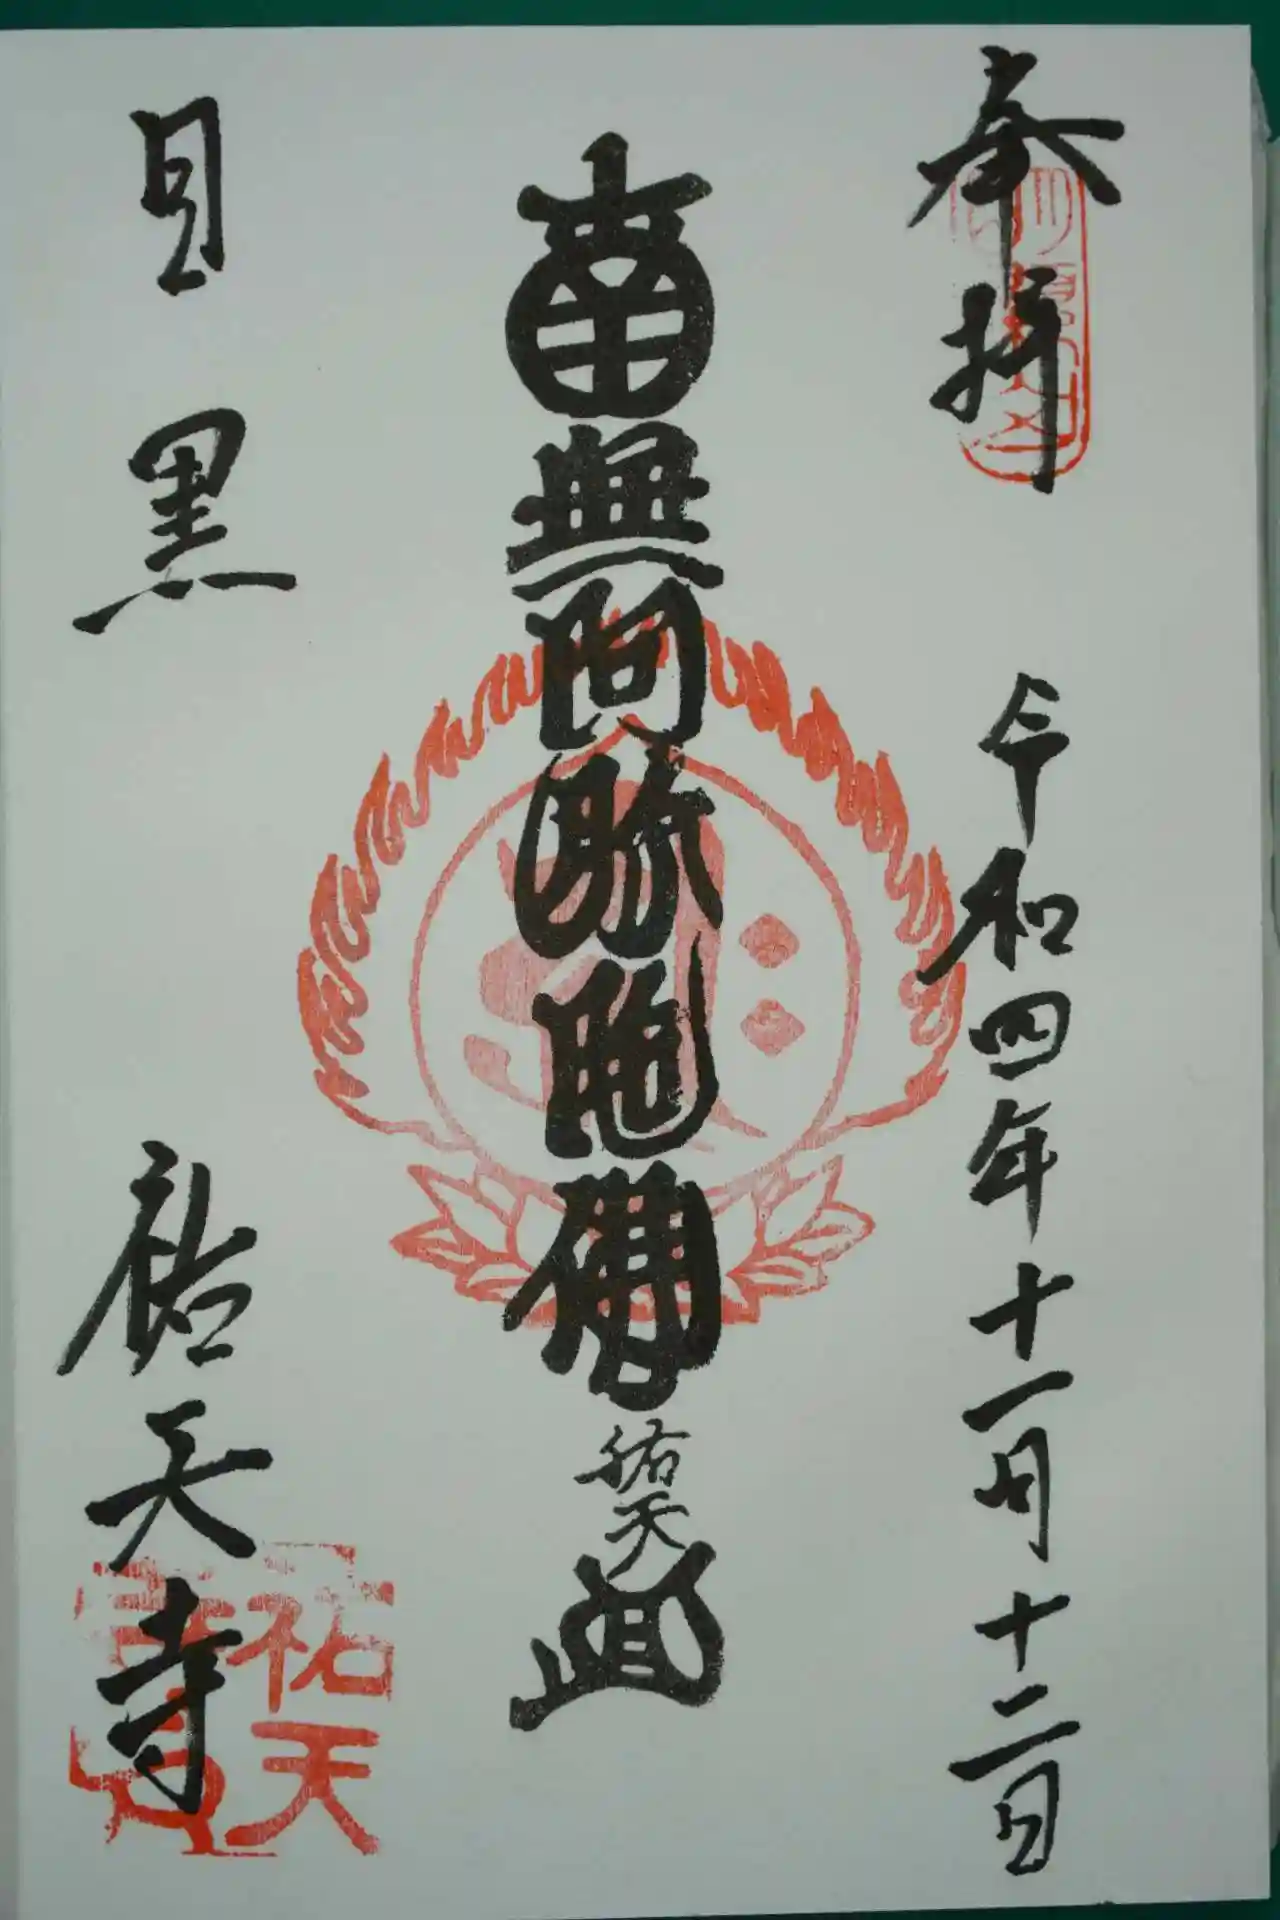 奉拝
令和四年十一月十二日
南無阿弥陀佛
祐天
目黒
祐天寺
祐天
寺